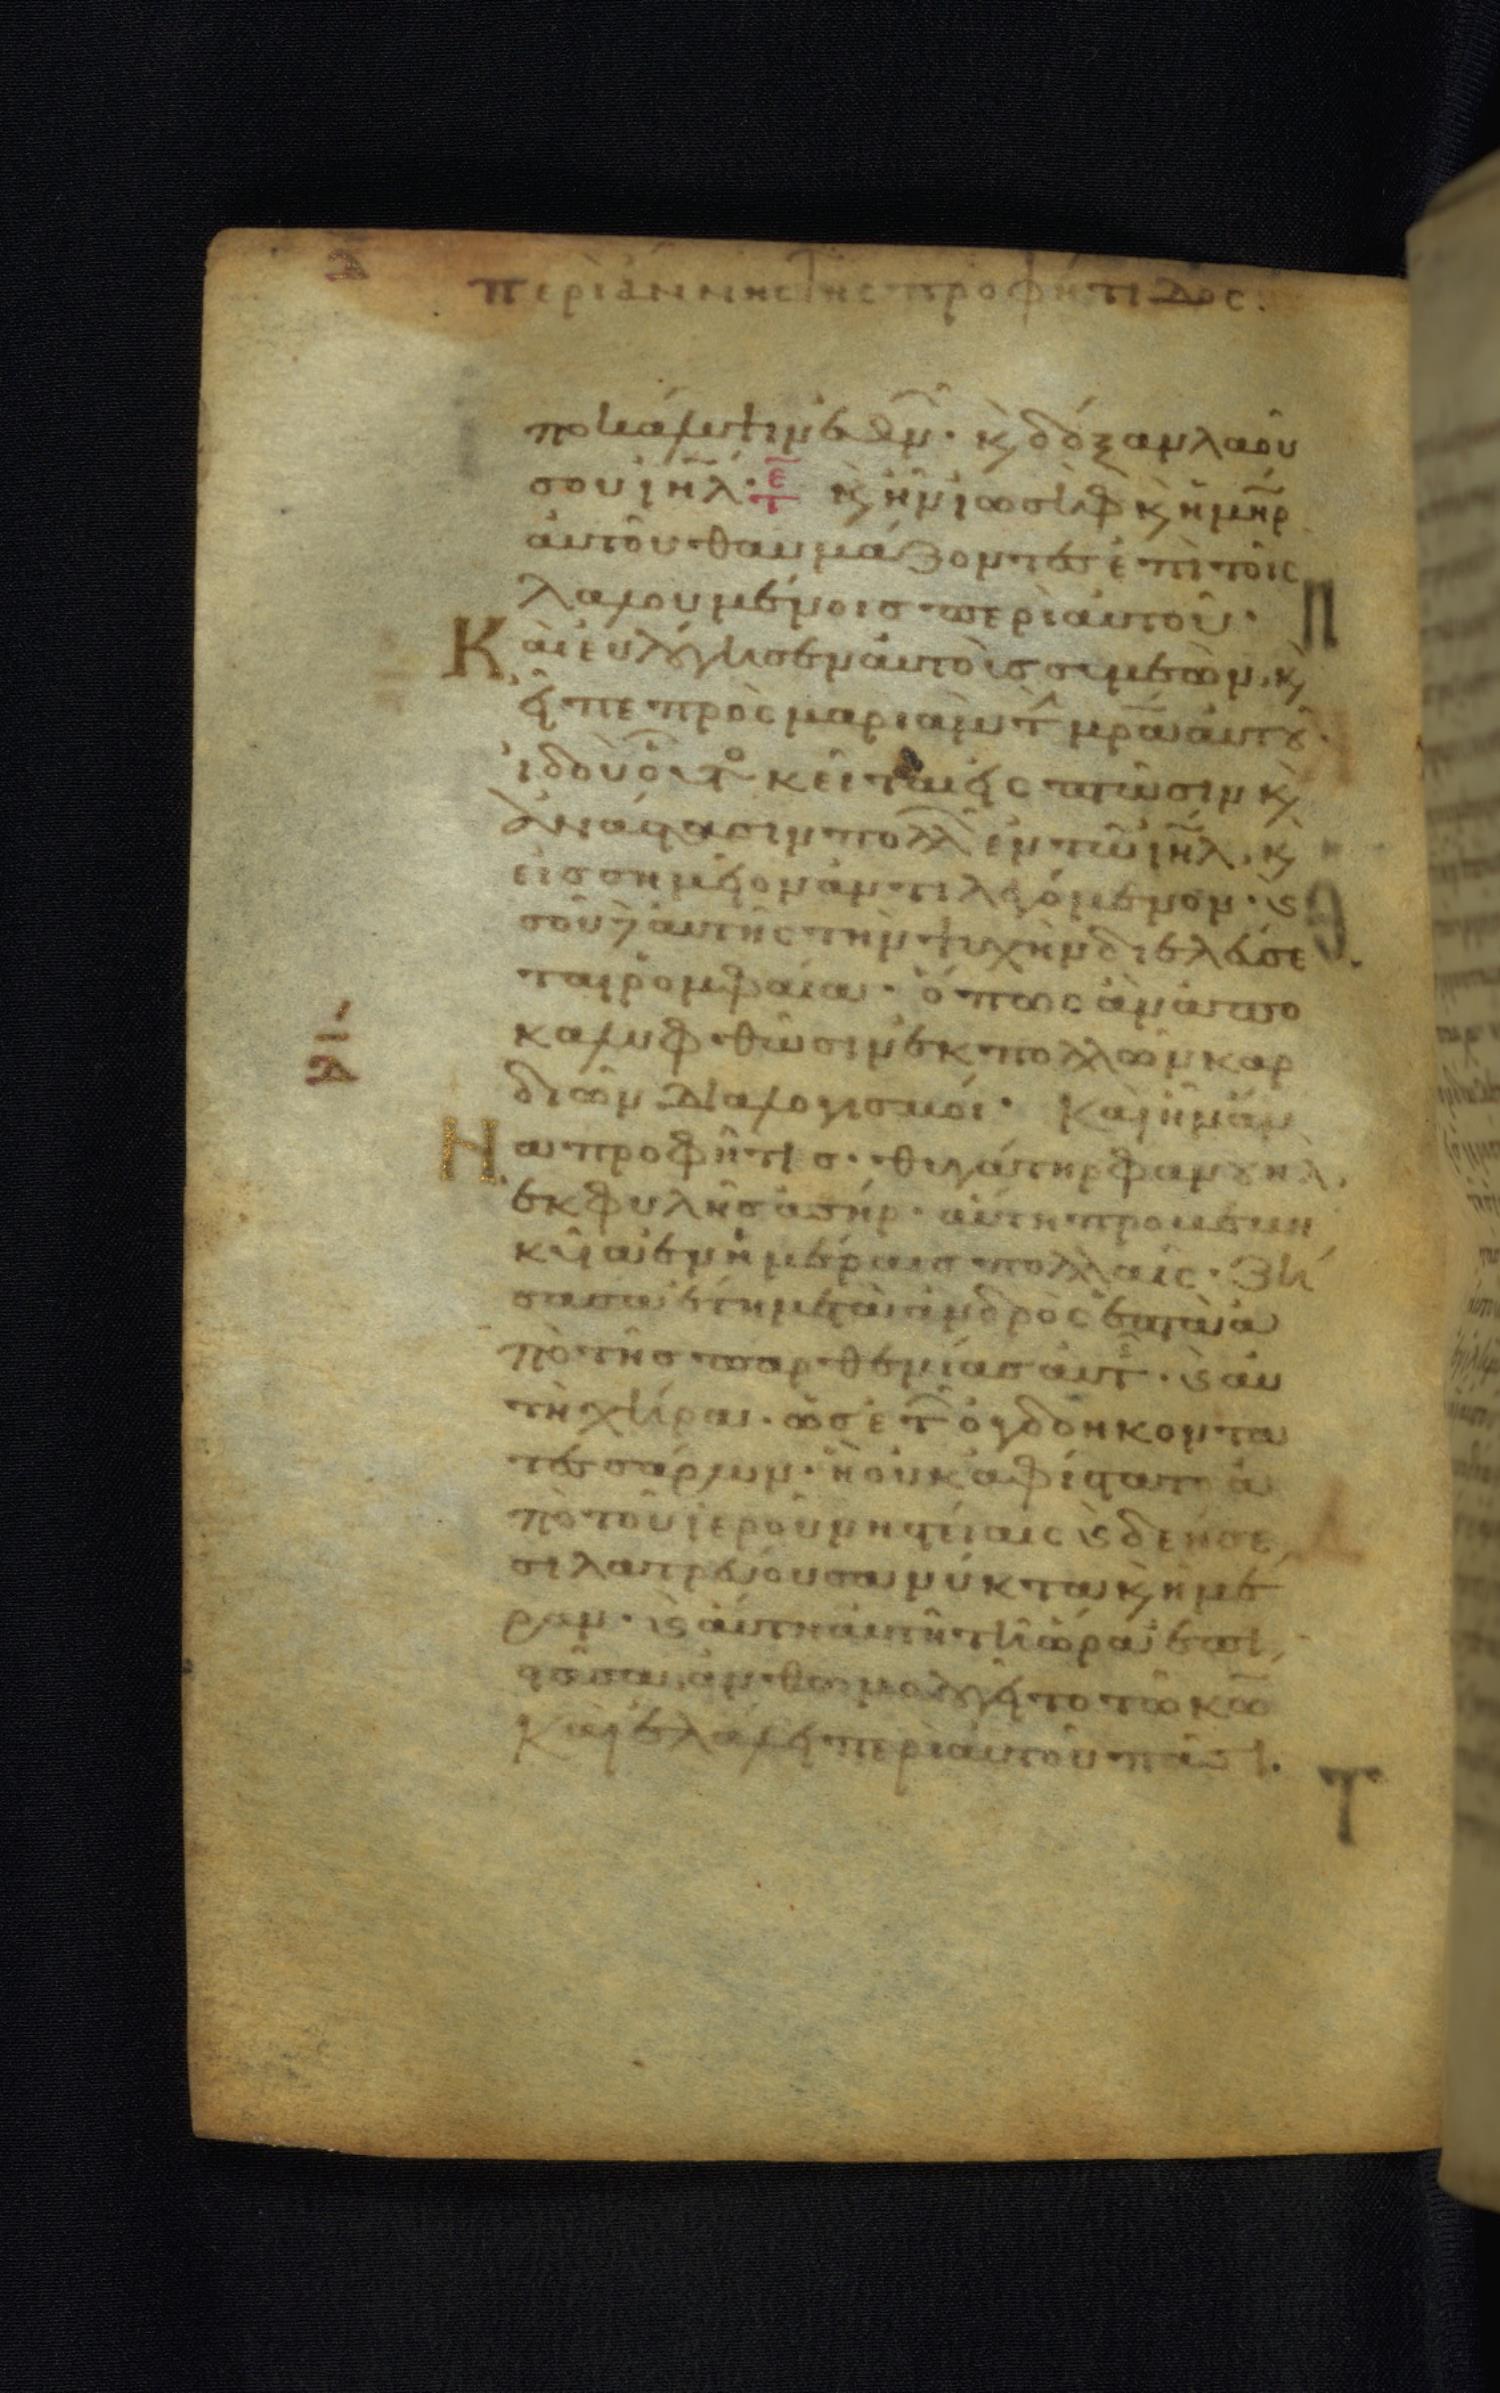 Δ
περὶ ἄννης τῆς προφήτιδος:
ποκάλυψιν ἐθνῶν· κ δόξαν λαοῦ
σου ιηλ· ετ κ ἦν ιωσὴφ κ ἡ μηρ
αὐτοῦ θαυμάζοντες ἐπὶ τοῖς
λαλουμένοις περὶ αὐτοῦ·
Καὶ εὐλόγησεν αὐτοὺς συμεὼν, κ
εἶπε πρὸς μαριὰμ τ μρα αὐτοῦ·
ἰδοὺ οὗτο κεῖται εἰς πτῶσιν κ
ἀνάστασιν πολλ ἐν τῶ ιηλ, κ
εἰς σημεῖον ἀντιλεγόμενον· κ
σοῦ δ αὐτῆς τὴν ψυχὴν διελεύσε
ται ῥομφαία· ὅπως ἂν ἀπο
καλυφθῶσιν ἐκ πολλῶν καρ
διῶν διαλογισμοί· Καὶ ἦν ἄν
Να προφῆτις· θυγάτηρ φανουηλ,
ἐκ φυλῆς ἀσήρ· αὕτη προβεβη
κυῖα ἐν ἡμέραις πολλαῖς· ζή
σασα ἔτη μετὰ ἀνδρὸς ἑπτὰ ἀ
πὸ τῆς παρθενίας αὐτ· κ αὐ
τὴ χήρα· ὡς ἐτ ὀγδοήκοντα
τεσσάρων· ἣ οὐκ ἀφίστατο ἀ
πὸ τοῦ ἱεροῦ νηστείαις κ δεήσε
σι λατρεύουσα νύκτα κ ἡμέ
ραν· κ αὕτη αὐτῆ τῆ ὥρα ἐπι
στᾶσα ἀνθωμολογεῖτο τῶ κω
Καὶ ἐλάλει περὶ αὐτοῦ πᾶσι·